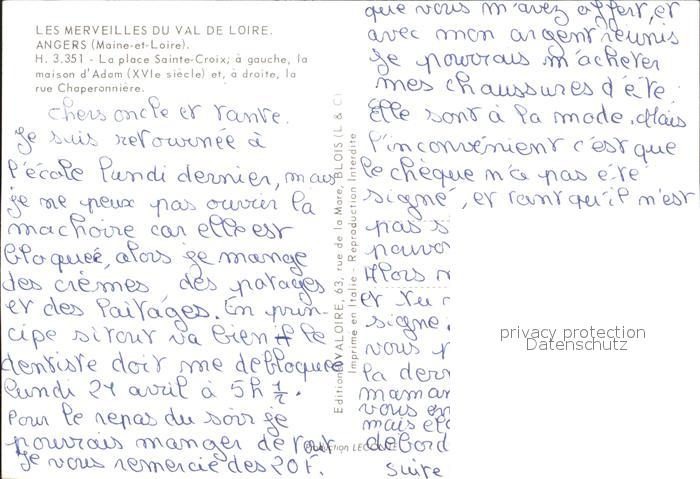 LES MERVEILLES DU VAL DE LOIRE.
ANGERS (Maine-et-Loire).
H. 3.351 - La place Sainte-Croix; à gauche, la
maison d'Adam (XVIe siècle) et, à droite, la
rue Chaperonnière.
Chers oncle et tante.
Je suis retournée à
l'école lundi dernier, mais
je ne peux pas ouvrir la
machoire car elle est
bloqueé, alors je mange
des crèmes des potages
et des laitages. En prin-
cipe si tout va bien le
dentiste doit me débloquer
lundi 24 avril à 5h ½.
Pour le repas du soir je
pourrais manger de tout
Je vous remercie des 20 F.
Editions VALOIRE, 63, rue de la Mare, BLOIS (L & C)
Imprimé en Italie - Reproduction Interdite
que vous m'avez offert, et
avec mon argent réunis
Je pourrais m'acheter
mes chaussures d'été.
Elle sont à la mode. Mais
l'inconvénient c'est que
le chèque n'a pas été
signé, et tant qu'il n'est
pas s
pouvo
Alors
et tu
signe.
vous
la dern
maman
vous en
mais el
debord
suite
privacy protection
Datenschutz